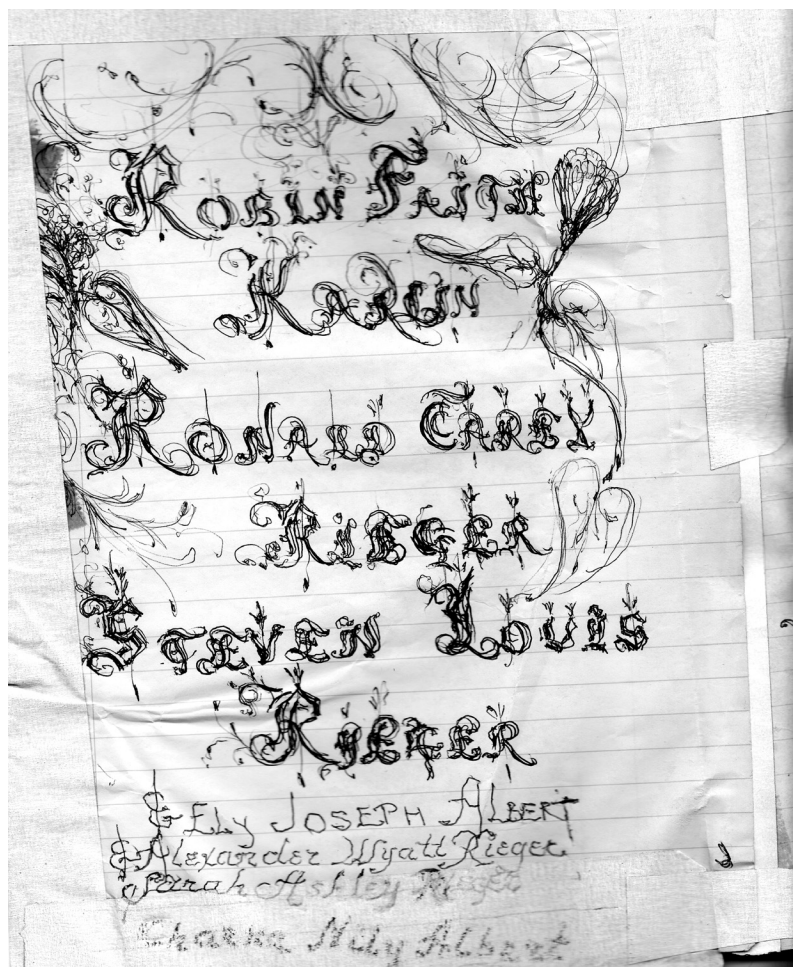 ROBIN FAITH
KARUN
RONALD CAREY
RIEGER
STEVEN LOUIS
RIEGER
& ELY JOSEPH ALBERT
& Alexander Wyatt Rieger
& Sarah Ashley Rieger
Albert